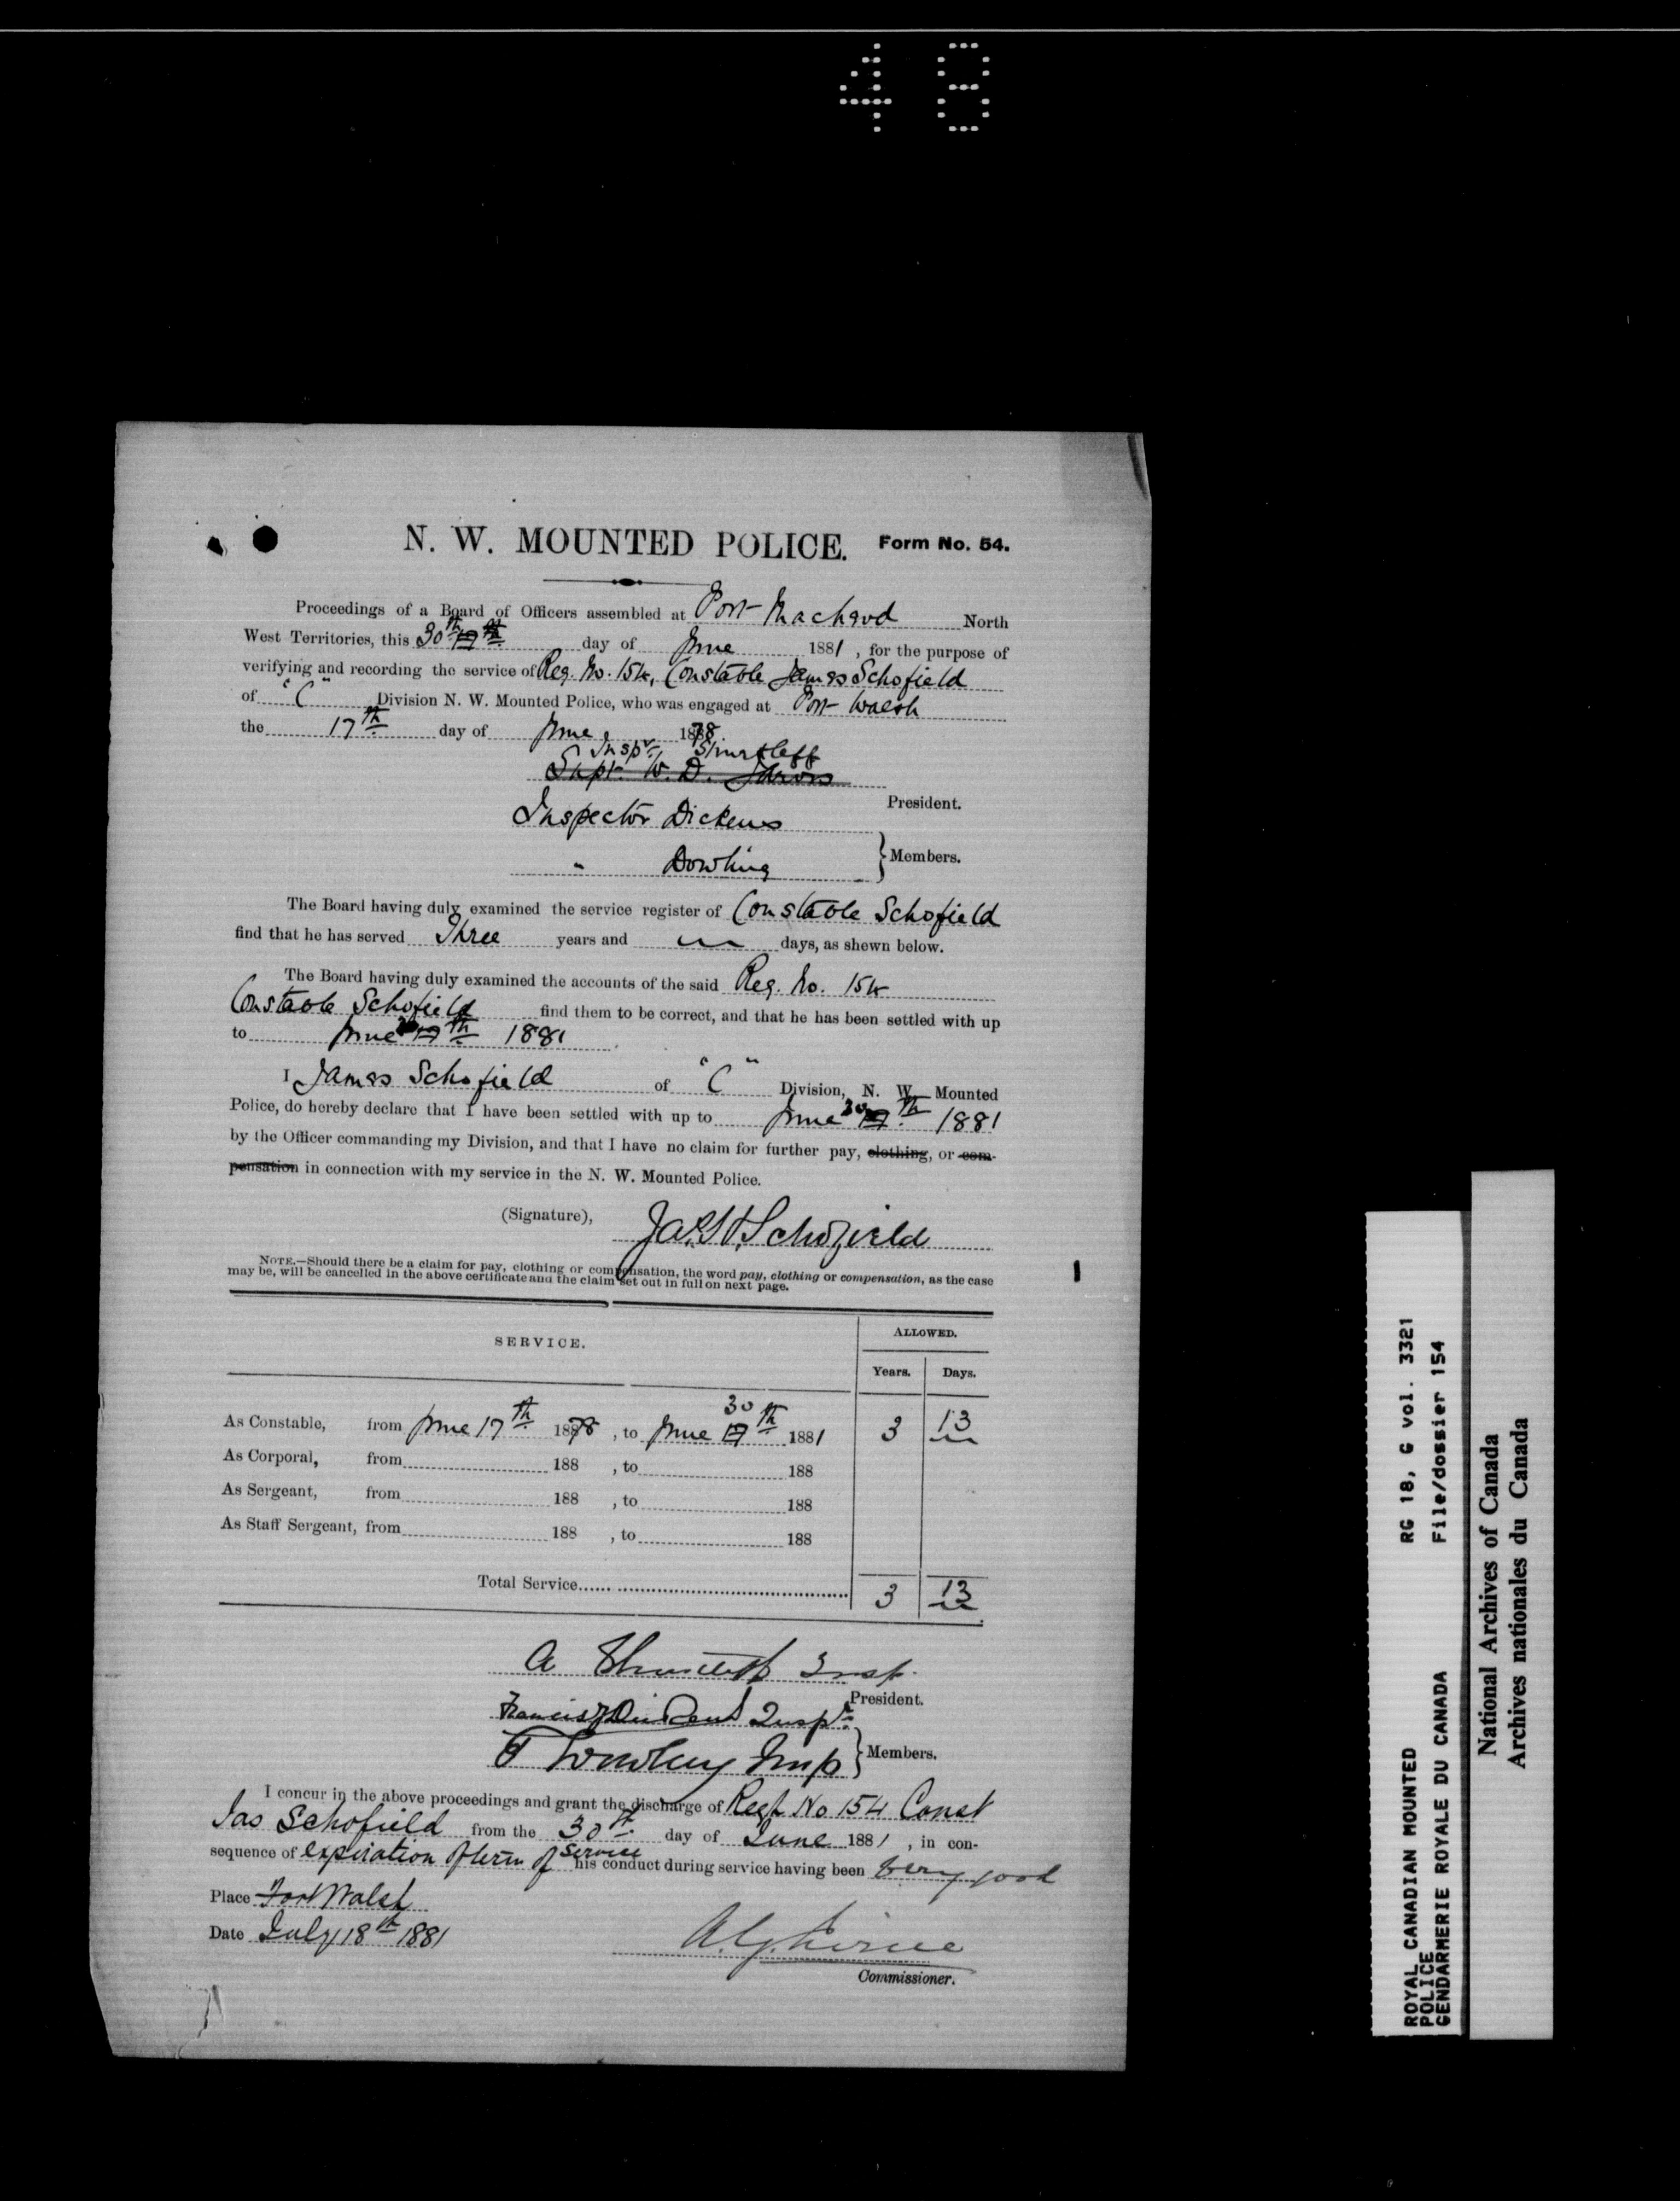 48
N. W. MOUNTED POLICE. Form No. 54.
Proceedings of a Board of Officers assembled at Fort Macleod North
West Territories, this 30th 17th day of June 1881, for the purpose of
verifying and recording the service of Reg. No. 154, Constable James Schofield
of "C" Division N. W. Mounted Police, who was engaged at Fort Walsh
the 17th day of June 1878
Inspr Shurtleff
Supt. W. D. Jarvis
President.
Inspector Dickens
" Dowling } Members.
The Board having duly examined the service register of Constable Schofield
find that he has served Three years and — days, as shewn below.
The Board having duly examined the accounts of the said Reg. No. 154
Constable Schofield find them to be correct, and that he has been settled with up
to June 30 17th 1881
I James Schofield of "C" Division, N. W. Mounted
Police, do hereby declare that I have been settled with up to June 30 17th 1881
by the Officer commanding my Division, and that I have no claim for further pay, clothing, or com-
pensation in connection with my service in the N. W. Mounted Police.
(Signature), Jas. H. Schofield
NOTE.—Should there be a claim for pay, clothing or compensation, the word pay, clothing or compensation, as the case
may be, will be cancelled in the above certificate and the claim set out in full on next page.
SERVICE. ALLOWED.
Years. Days.
As Constable, from June 17th 1878, to June 30 17th 1881 3 13
As Corporal, from 188 , to 188
As Sergeant, from 188 , to 188
As Staff Sergeant, from 188 , to 188
Total Service 3 13
A Shurtleff Insp.
President.
Francis J Dickens Inspr.
T Dowling Insp } Members.
I concur in the above proceedings and grant the discharge of Regt No 154 Const
Jas Schofield from the 30th day of June 1881, in con-
sequence of expiration of term of service his conduct during service having been very good
Place Fort Walsh
Date July 18th 1881
A. G. Irvine
Commissioner.
ROYAL CANADIAN MOUNTED RG 18, G vol. 3321
POLICE
GENDARMERIE ROYALE DU CANADA File/dossier 154
National Archives of Canada
Archives nationales du Canada